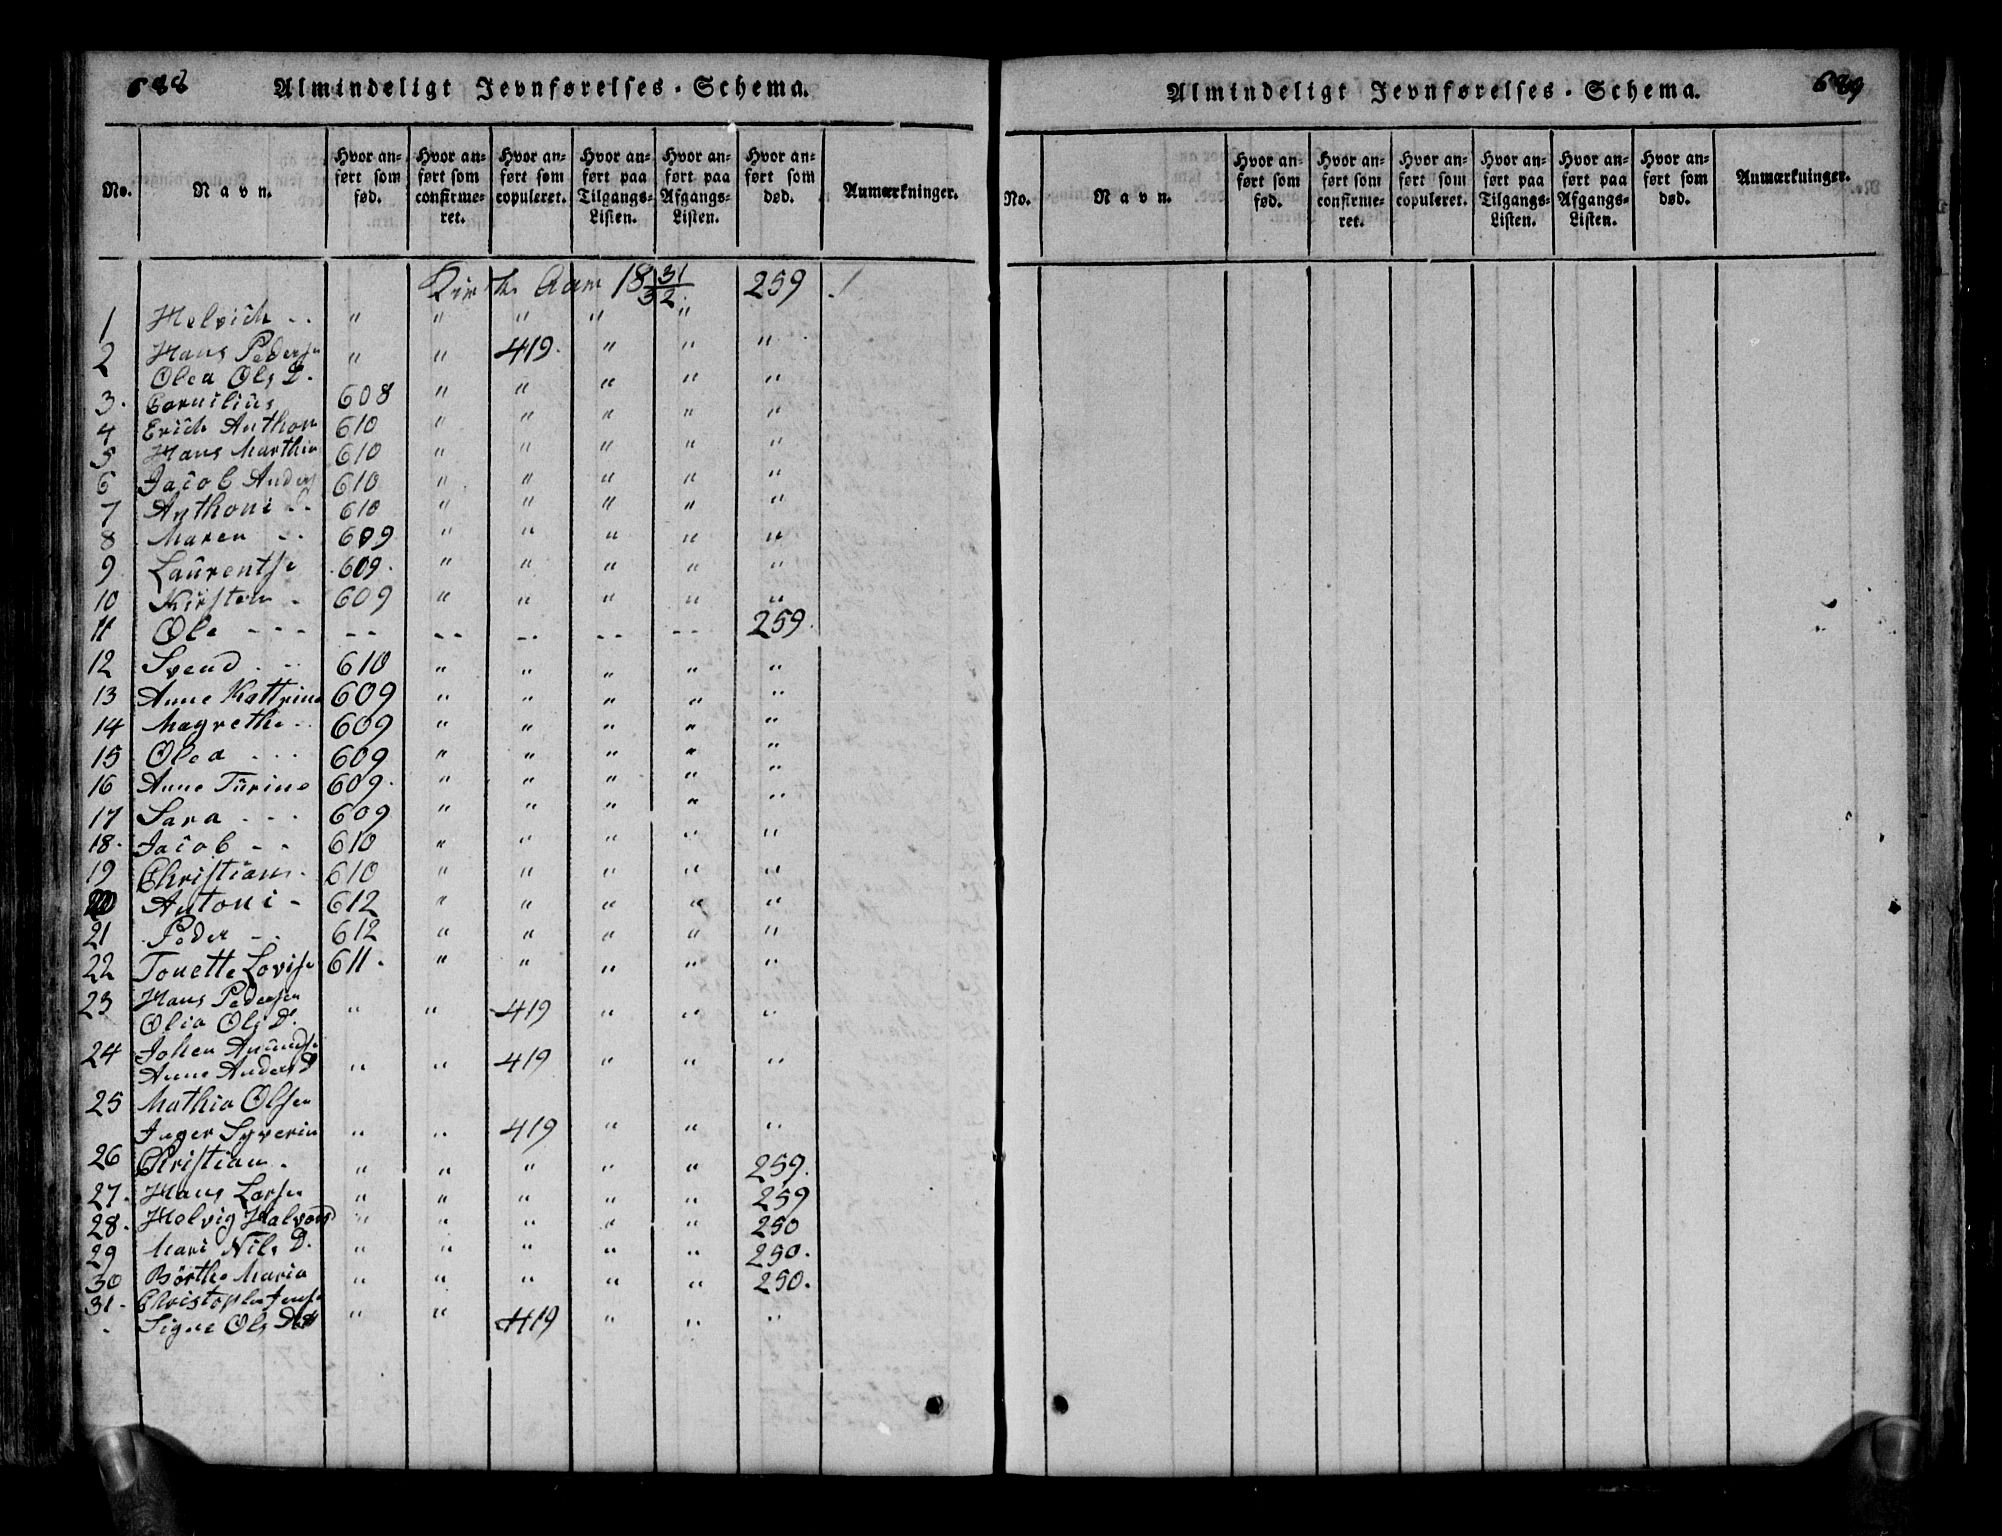 688 Almindeligt Jevnførelses-Schema.
No. Navn. Hvor anført som fød. Hvor anført som confirmeret. Hvor anført som copuleret. Hvor anført paa Tilgangs-Listen. Hvor anført paa Afgangs-Listen. Hvor anført som død. Anmærkninger.
Kirke Aar 18 31/32
1 Helvich - - " " " " " 259
2 Hans Peders " " 419 " " "
Olea Ols D.
3. Cornilius 608 " " " " "
4 Erich Anthon 610 " " " " "
5 Hans Marthin 610 " " " " "
6 Jacob Anders 610 " " " " "
7 Anthoni - - 610 " " " " "
8 Maren - - 609 " " " " "
9 Laurentse 609. " " " " "
10 Kirsten - 609 " " " " "
11 Ole - - - - - - - - - - - - - 259.
12 Svend - - 610 " " " " "
13 Anne Kattrine 609 " " " " "
14 Magrethe - 609 " " " " "
15 Olea - - - 609 " " " " "
16 Anne Turine 609. " " " " "
17 Sara - - - 609 " " " " "
18. Jacob - - 610 " " " " "
19 Christian. 610 " " " " "
20 Antoni - 612 " " " " "
21 Peder - - 612 " " " " "
22 Tonette Lovise 611. " " " " "
23 Hans Pedersen
Olia Ols D. " " 419 " " "
24 Johen Amunds
Anne Anders D " " 419 " " "
25 Mathia Olsen
Inger Syverin " " 419 " " "
26 Christian. " " " " " 259.
27. Hans Larsen " " " " " 259
28. Holvig Halvors " " " " " 250
29 Mari Nils D. " " " " " 250.
30 Börthe Maria " " " " " 250.
31. Christopher Jens
Signe Ols Dat " " 419 " " "
Almindeligt Jevnførelses-Schema. 689
No. Navn. Hvor anført som fød. Hvor anført som confirmeret. Hvor anført som copuleret. Hvor anført paa Tilgangs-Listen. Hvor anført paa Afgangs-Listen. Hvor anført som død. Anmærkninger.